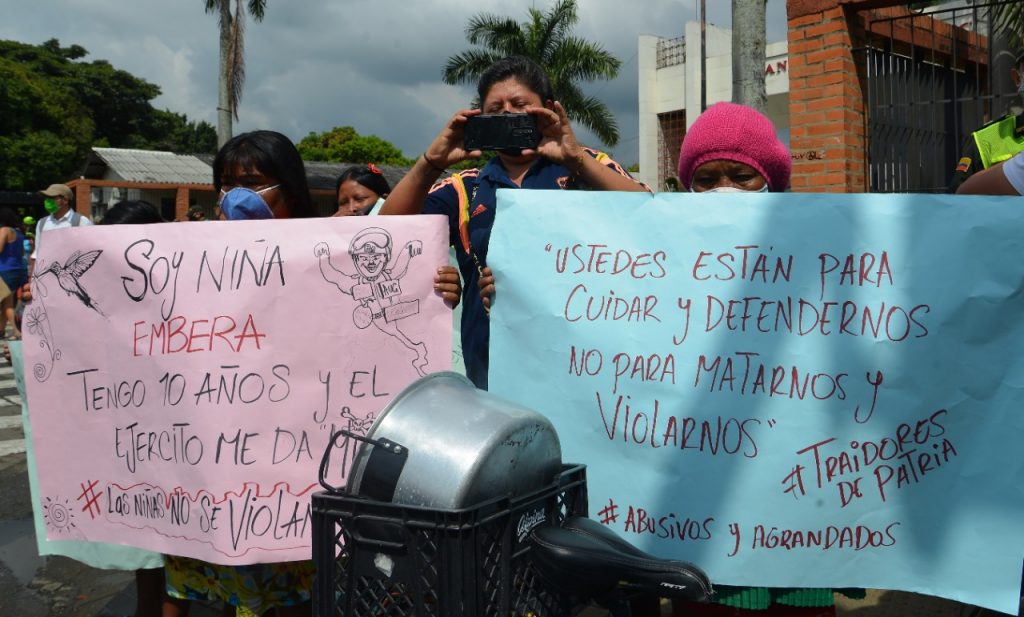 SOY NIÑA
EMBERA
TENGO 10 AÑOS Y EL
EJERCITO ME DA
#LAS NIÑAS NO SE VIOLAN
"USTEDES ESTÁN PARA
CUIDAR Y DEFENDERNOS
NO PARA MATARNOS Y
VIOLARNOS"
#TRAIDORES
DE PATRIA
#ABUSIVOS Y AGRANDADOS
AN